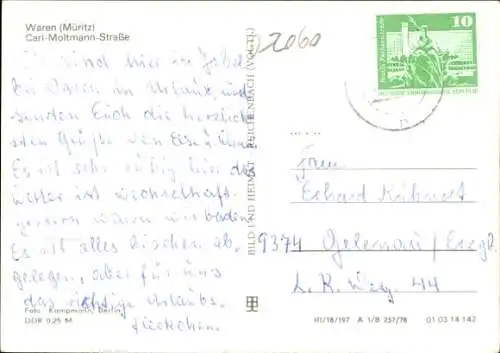 Waren (Müritz)
Carl-Moltmann-Straße
Wir sind hier in Jabel
bei Waren im Urlaub und
senden Euch die herzlich
sten Grüße von
Es ist sehr ruhig hier das
Wetter ist wechselhaft
gestern waren wir baden
Es ist alles bischen ab
gelegen, aber für uns
das richtige Urlaubs
fleckchen.
Foto: Kampmann, Berlin
DDR 0,25 M
BILD UND HEIMAT REICHENBACH (VOGTL)
22060
10
Fam.
Erhard Kühnert
9374 Gelenau/Erzgb.
L. K. Weg. 44
III/18/197 A 1/B 257/78 01 03 14 142